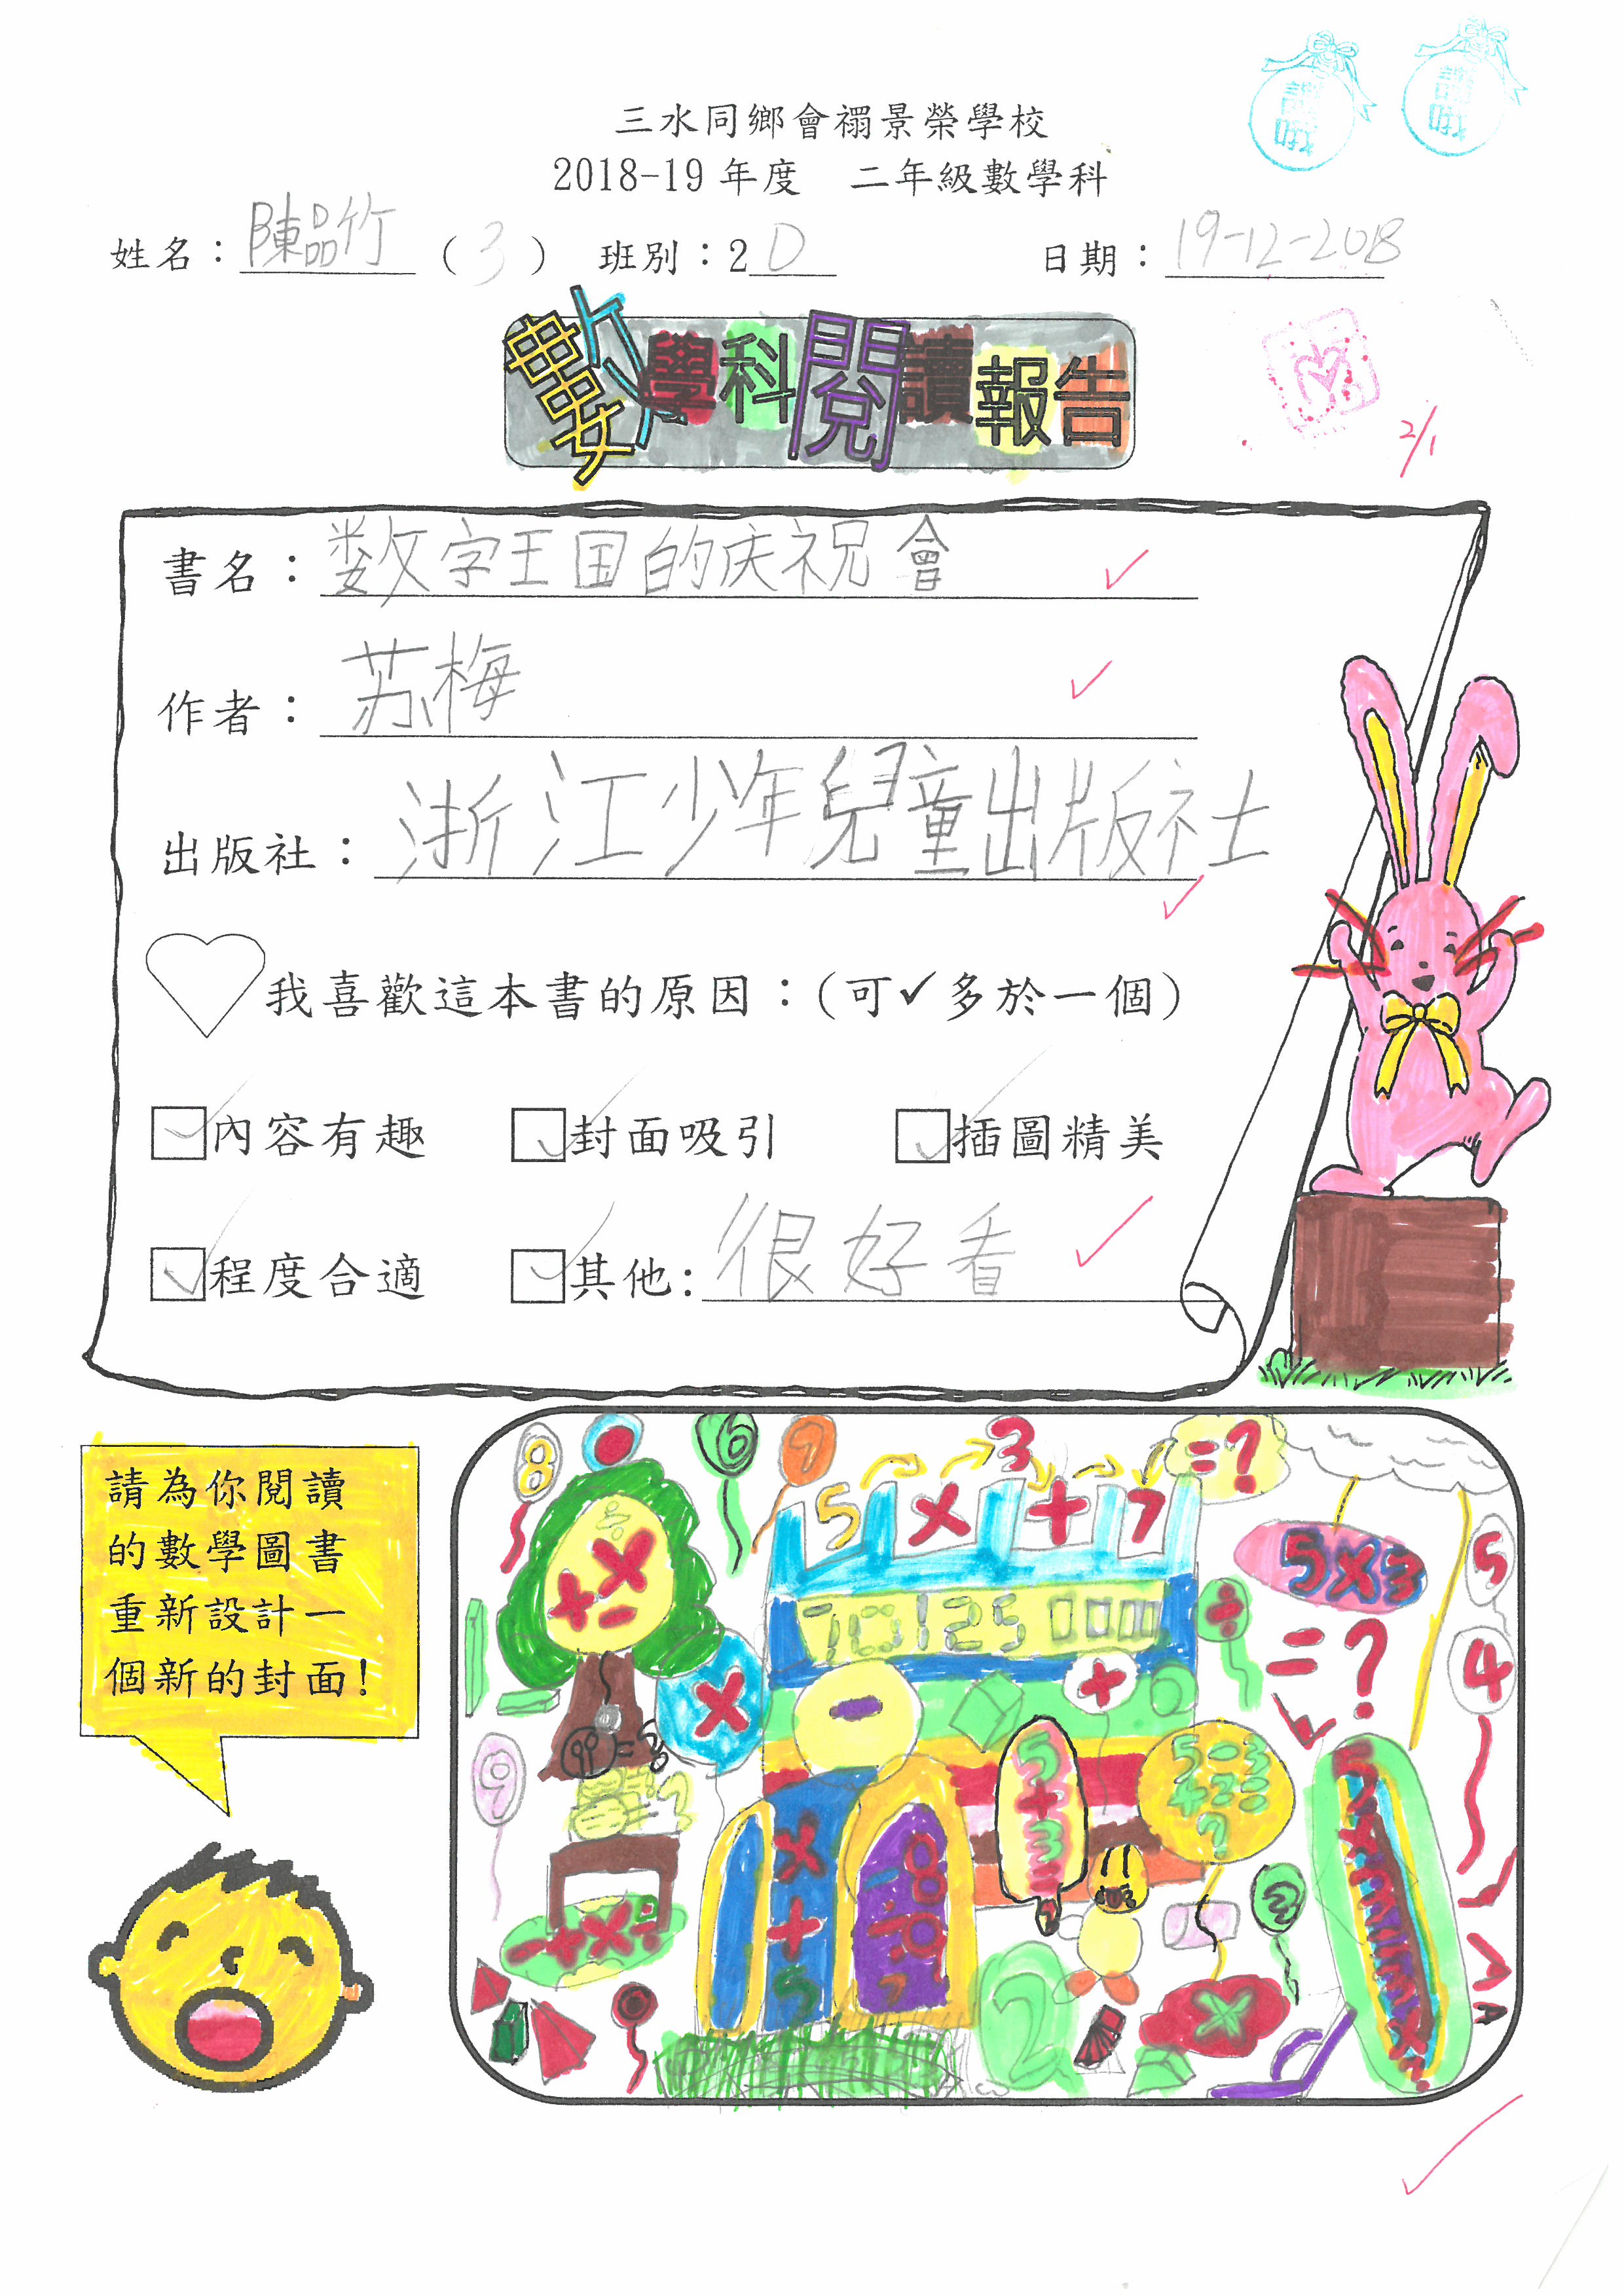 三水同鄉會禤景榮學校
2018-19 年度 二年級數學科
姓名：陳品竹 (3) 班別：2D 日期：19-12-2018
數學科閱讀報告
2/1
書名：数字王国的庆祝會
作者：苏梅
出版社：浙江少年兒童出版社
我喜歡這本書的原因：(可✓多於一個)
內容有趣 封面吸引 插圖精美
程度合適 其他：很好看
請為你閱讀
的數學圖書
重新設計一
個新的封面！
8 6 7
5 × 3 + 7 =?
× + −
5×3
=?
5
4
70125
÷
×
−
+
9
5+3=?
5-3
+2=
?
×+5
-+×÷
2
×